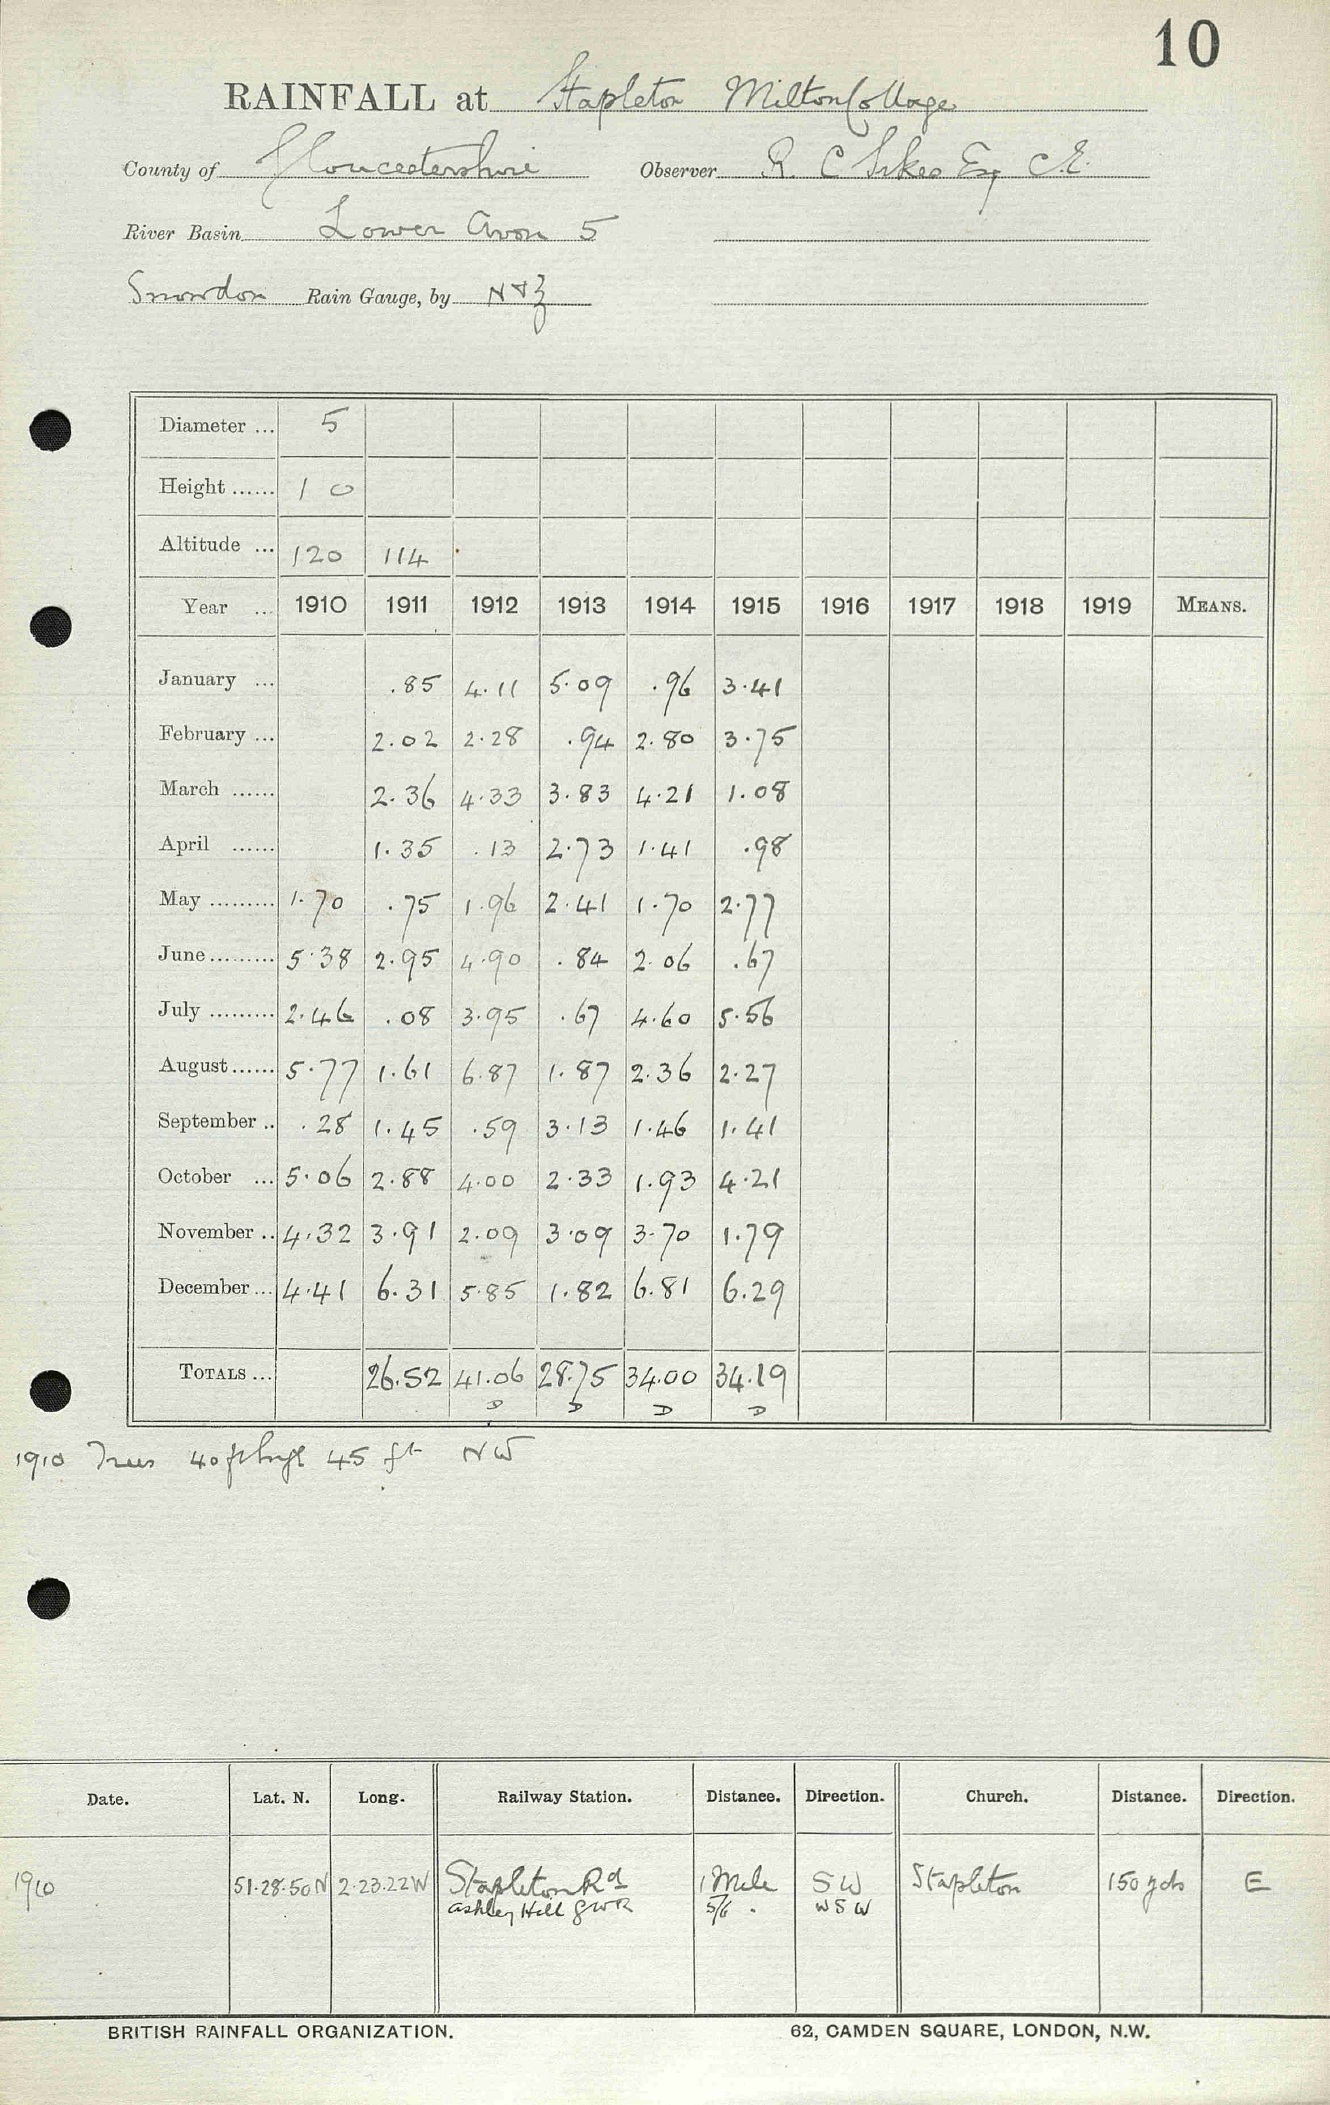 10
RAINFALL at Stapleton Milton Cottage
County of Gloucestershire Observer R. C Sikes Esq C.E.
River Basin Lower Avon 5
Snowdon Rain Gauge, by N & Z
Diameter ... 5
Height ...... 1 0
Altitude ... 120 114
Year ... 1910 1911 1912 1913 1914 1915 1916 1917 1918 1919 MEANS.
January ... .85 4.11 5.09 .96 3.41
February ... 2.02 2.28 .94 2.80 3.75
March ...... 2.36 4.33 3.83 4.21 1.08
April ...... 1.35 .13 2.73 1.41 .98
May ......... 1.70 .75 1.96 2.41 1.70 2.77
June ......... 5.38 2.95 4.90 .84 2.06 .67
July ......... 2.46 .08 3.95 .67 4.60 5.56
August ...... 5.77 1.61 6.87 1.87 2.36 2.27
September .. .28 1.45 .59 3.13 1.46 1.41
October ... 5.06 2.88 4.00 2.33 1.93 4.21
November .. 4.32 3.91 2.09 3.09 3.70 1.79
December ... 4.41 6.31 5.85 1.82 6.81 6.29
TOTALS ... 26.52 41.06 28.75 34.00 34.19
D D D D
1910 Trees 40 ft high 45 ft NW
Date. Lat. N. Long. Railway Station. Distance. Direction. Church. Distance. Direction.
1910 51.28.50 N 2.23.22 W Stapleton Rd 1 Mile SW Stapleton 150 yds E
Ashley Hill GWR 5/6 " WSW
BRITISH RAINFALL ORGANIZATION. 62, CAMDEN SQUARE, LONDON, N.W.